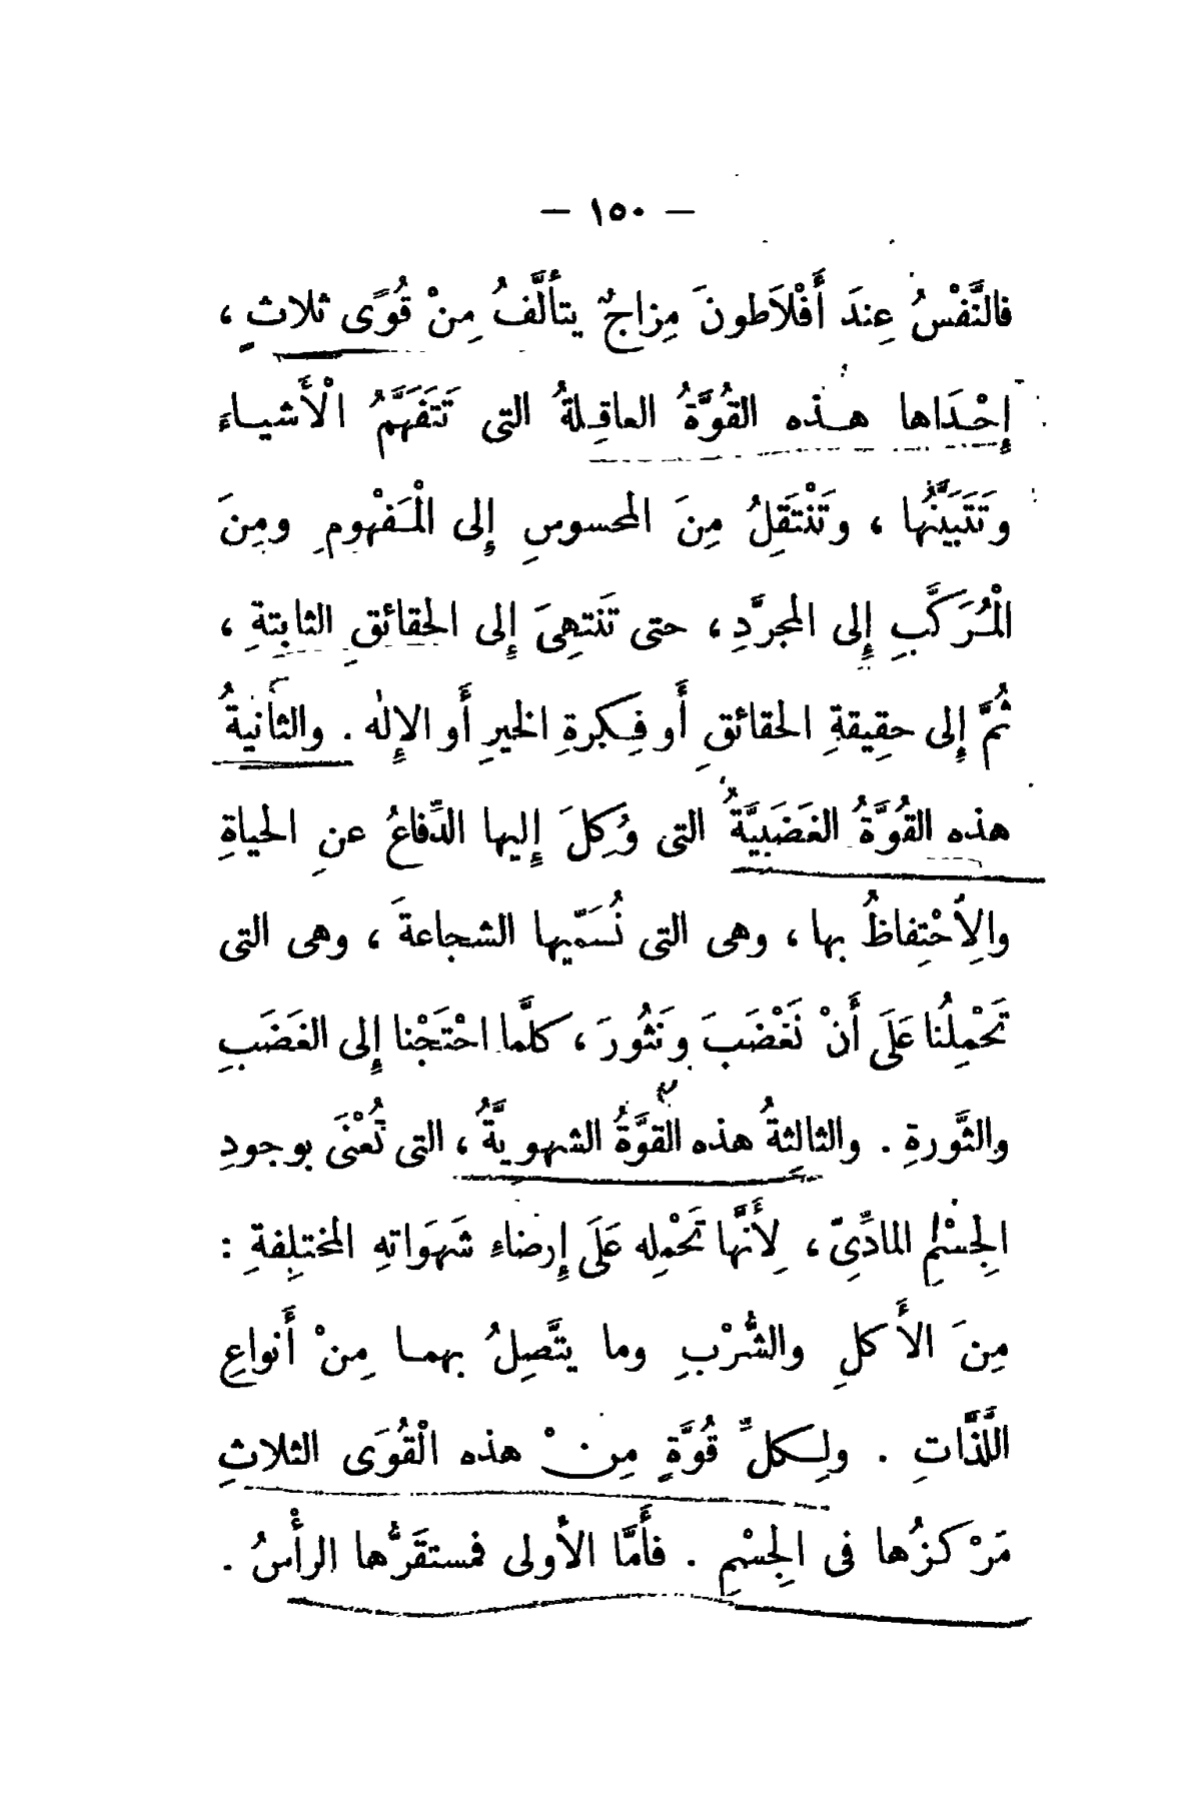 — ١٥٠ —
فالنَّفْسُ عِندَ أَفْلَاطونَ مِزاجٌ يتألَّفُ مِنْ قُوًى ثلاثٍ ،
إِحْدَاها هـذه القُوَّةُ العاقِلةُ التى تَتَفَهَّمُ الْأَشياءَ
وتَتَبَيَّنُها ، وتَنْتَقِلُ مِنَ المحسوسِ إِلى الْمَفْهومِ ومِنَ
الْمُرَكَّبِ إِلى المجرَّدِ ، حتى تَنتهِىَ إِلى الحقائقِ الثابتةِ ،
ثُمَّ إِلى حقِيقةِ الحقائقِ أَو فِكرةِ الخيرِ أَو الإِلٰه . والثانيةُ
هذه القُوَّةُ الغَضَبيَّةُ التى وُكِلَ إِليها الدِّفاعُ عنِ الحياةِ
والِاْحْتِفاظُ بها ، وهى التى نُسَمّيها الشجاعةَ ، وهى التى
تَحْمِلُنا عَلَى أَنْ نَغْضَبَ ونَثُورَ ، كلَّما احْتَجْنا إِلى الغَضَبِ
والثَّورةِ . والثالِثةُ هذه القوَّةُ الشهويَّةُ ، التى تُعْنَى بوجودِ
الجِسْمِ المادِّىّ ، لِأَنَّها تَحْمِله عَلَى إِرضاءِ شَهَواتهِ المختلِفةِ :
مِنَ الأَكلِ والشُّرْبِ وما يتَّصِلُ بهمـا مِنْ أَنواعِ
اللَّذَّاتِ . ولِكلِّ قُوَّةٍ مِنْ هذه الْقُوَى الثلاثِ
مَرْكزُها فى الجِسْمِ . فأَمَّا الأولى فمستقَرُّها الرأْسُ .